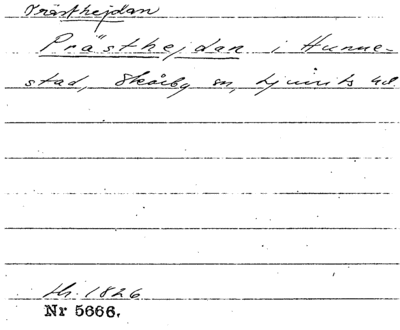 Prästhejdan
Prästhejdan i Hunne-
stad, Skårby sn, Ljunits hd.
th. 1826
Nr 5666.